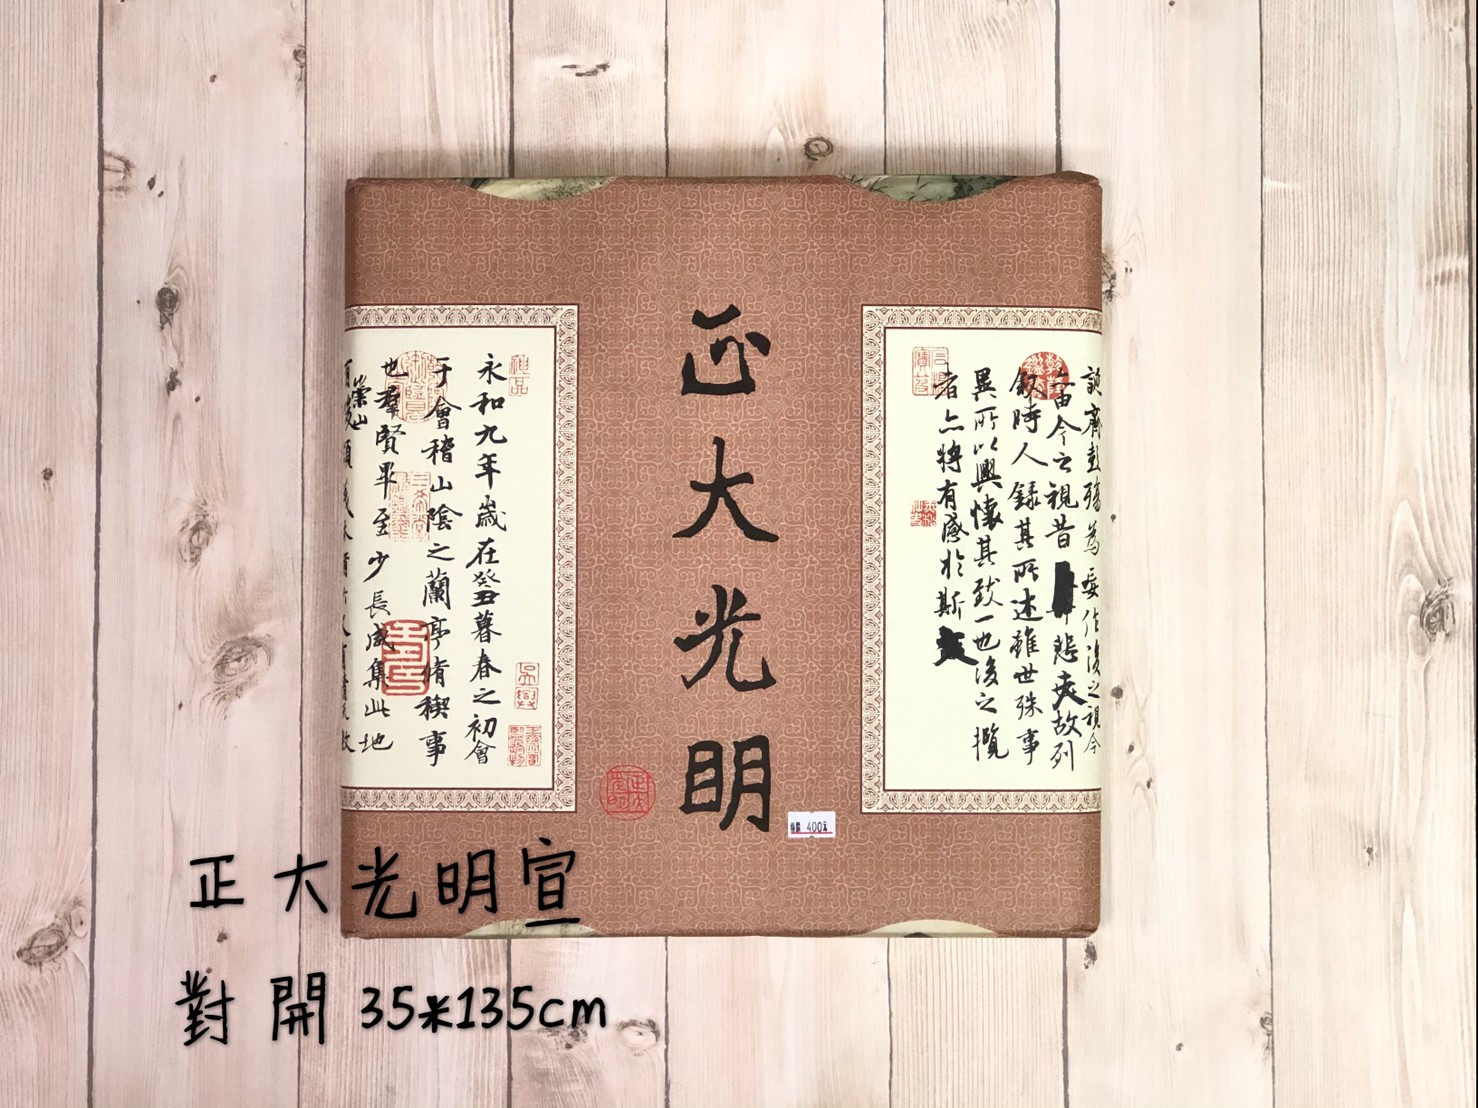 正大光明
永和九年歲在癸丑暮春之初會
于會稽山陰之蘭亭脩稧事
也群賢畢至少長咸集此地
崇山
誕齊彭殤為妄作後之視今
亦由今之視昔悲夫故列
敘時人錄其所述雖世殊事
異所以興懷其致一也後之攬
者亦將有感於斯
特價 400元
正大光明宣
對開 35*135cm